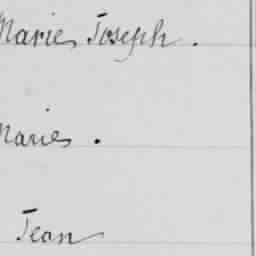 Marie Joseph.
Marie.
Jean